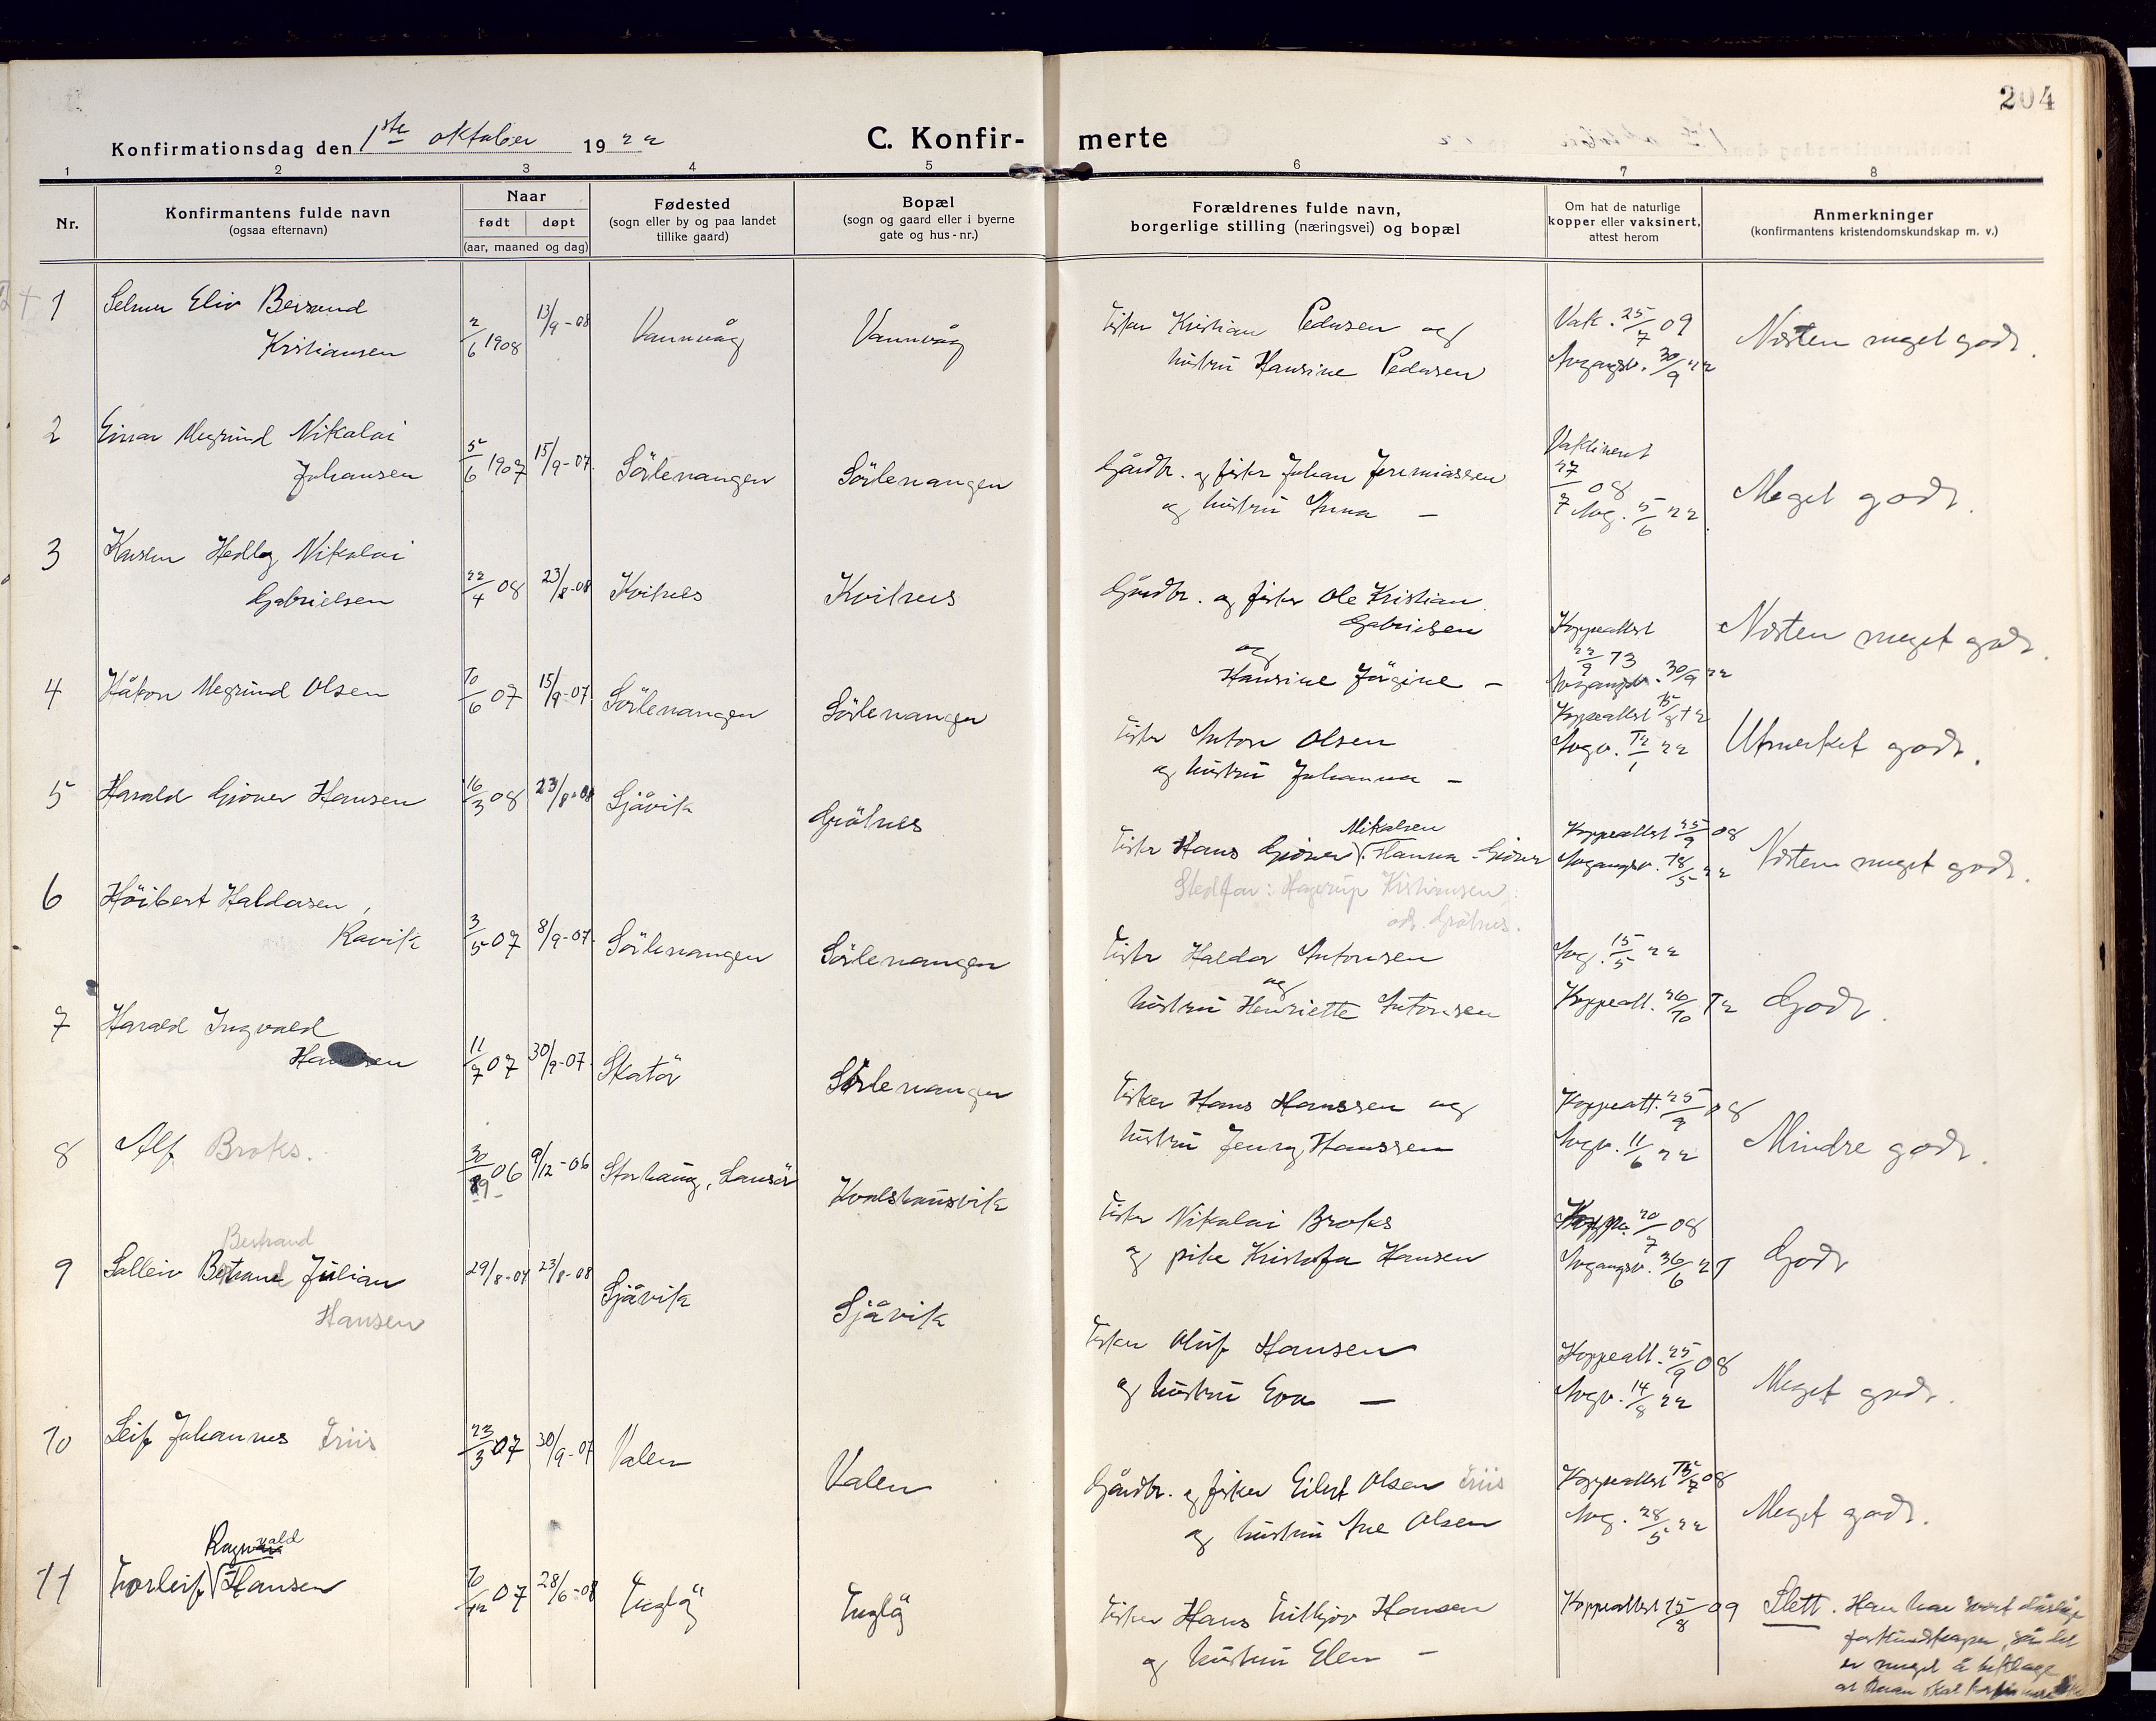 204
Konfirmationsdag den 1ste oktober 1922
C. Konfir-merte
1 2 3 4 5 6 7 8
Nr.
Konfirmantens fulde navn
(ogsaa efternavn)
Naar
født døpt
(aar, maaned og dag)
Fødested
(sogn eller by og paa landet
tillike gaard)
Bopæl
(sogn og gaard eller i byerne
gate og hus-nr.)
Forældrenes fulde navn,
borgerlige stilling (næringsvei) og bopæl
Om hat de naturlige
kopper eller vaksinert,
attest herom
Anmerkninger
(konfirmantens kristendomskundskap m. v.)
1 Selmer Eliv
Kristiansen
2/6 1908 13/9-08 Vannvåg Vannvåg
Fisker Kristian Pedersen og
hustru Hansine Pedersen
Vak. 25/7 09
30/9 22
Næsten meget godt.
2 Einar Megrund Nikolai
Johansen
5/6 1907 15/9-07. Sörlenangen Sörlenangen
Gårdbr. og fisker Johan Jeremiassen
og hustru Anna —
Vaksinert
27/7 08
5/6 22
Meget godt.
3 Hedley Nikolai
Gabrielsen
22/4 08 23/8-08 Kvitnes Kvitnes
Gårdbr. og fisker Ole Kristian
Gabrielsen
og
Hansine Jörgine —
Koppeattest
22/9 13
30/9 22
Næsten meget godt.
4 Håkon Megrund Olsen
10/6 07 15/9-07 Sörlenangen Sörlenangen
Fisker Anton Olsen
og hustru Johanna —
Koppeattest
12/1 22
Utmerket godt.
5 Harald Giæver Hansen
16/3 08 23/8-08 Sjåvik Grötnes
Mikalsen
Fisker Hans Giæver Hanna Giæver
Stedfar: Hagerup Kristiansen
Grötnes.
Koppeattest 25/9 08
18/5 22
Næsten meget godt.
6 Höibert Haldorsen,
Ravik
3/5 07 8/9-07. Sörlenangen Sörlenangen
Fisker Haldor Antonsen
og
hustru Henriette Antonsen
15/5 22
Koppeatt. 26/10 12
Godt.
7 Harald Ingvald
Hanssen
11/7 07 30/9-07. Skatör Sörlenangen
Fisker Hans Hanssen og
hustru Jenny Hanssen
Koppeatt. 25/9 08
11/6 22
Mindre godt.
8 Alf Broks.
30/9 06 9/12-06 Storhaug, Lansör Kvalshausvik
Fisker Nikolai Broks
og pike Kristofa Hansen
20/7 08
Godt
9 Bertrand
Salleiv Bertrand Julian
Hansen
29/8-07 23/8-08 Sjåvik Sjåvik
Fisker Oluf Hansen
og hustru Eva —
Koppeatt. 25/9 08
14/8 22
Meget godt.
10 Leif Johannes Friis
23/3 07 30/9-07 Valen Valen
Gårdbr. og fisker Eilert Olsen Friis
og hustru Ane Olsen
Koppeattest 15/7 08
28/5 22
Meget godt.
11 Ragnvald
Torleif Hansen
10/12 07 28/6-08 Fuglö Fuglö
Fisker Hans Frithjov Hansen
og hustru Elen —
Koppeattest 15/8 09
Slett. Han har svært dårlige
forkundskaper, så det
er meget å beklage
at man skal